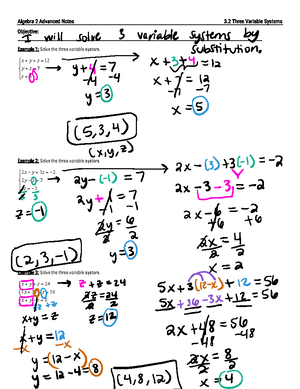 Algebra 2 Advanced Notes 3.2 Three Variable Systems
Objective:
I will solve 3 variable systems by
substitution.
Example 1: Solve the three variable system.
x + y + z = 12
y + z = 7
y + 4 = 7
-4 -4
y = 3
x + 3 + 4 = 12
x + 7 = 12
-7 -7
x = 5
(5, 3, 4)
(x, y, z)
Example 2: Solve the three variable system.
2x - y + 3z = -2
2y - (-1) = 7
2y + 1 = 7
-1 -1
2y = 6
2 2
y = 3
z = -1
2x - (3) + 3(-1) = -2
2x - 3 - 3 = -2
2x - 6 = -2
+6 +6
2x = 4
2 2
x = 2
(2, 3, -1)
Example 3: Solve the three variable system.
z + z = 24
2z = 24
2 2
z = 12
x + y = z
x + y = 12
-x -x
y = (12 - x)
y = 12 - 4 = 8
5x + 3(12 - x) + 12 = 56
5x + 36 - 3x + 12 = 56
2x + 48 = 56
-48 -48
2x = 8
2 2
x = 4
(4, 8, 12)